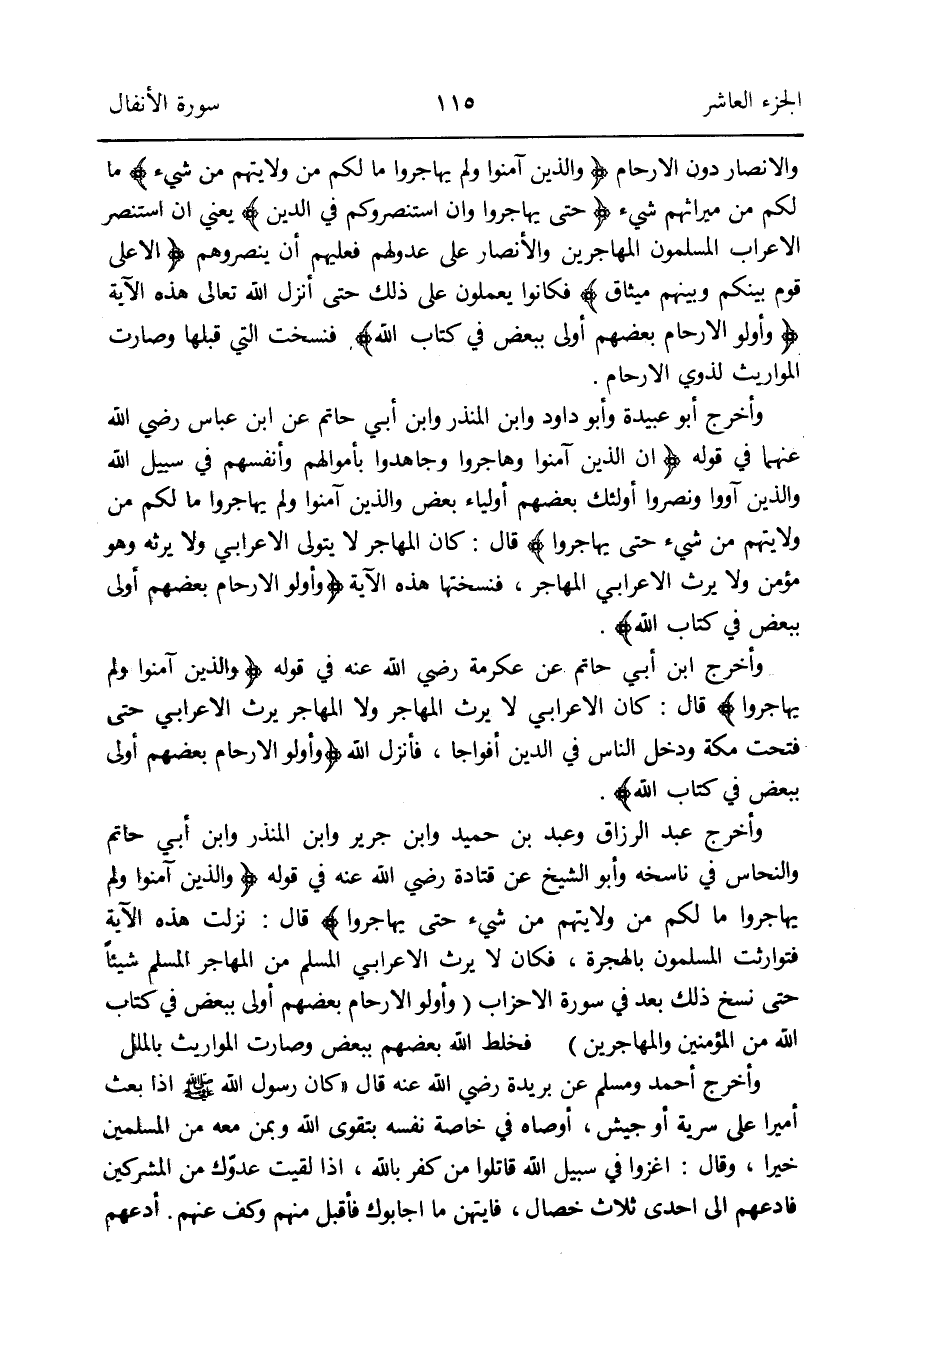 الجزء العاشر ١١٥ سورة الأنفال
والانصار دون الارحام ﴿ والذين آمنوا ولم يهاجروا ما لكم من ولايتهم من شيء ﴾ ما
لكم من ميراثهم شيء ﴿ حتى يهاجروا وان استنصروكم في الدين ﴾ يعني ان استنصر
الاعراب المسلمون المهاجرين والأنصار على عدولهم فعليهم أن ينصروهم ﴿ الاعلى
قوم بينكم وبينهم ميثاق ﴾ فكانوا يعملون على ذلك حتى أنزل الله تعالى هذه الآية
﴿ وأولو الارحام بعضهم أولى ببعض في كتاب الله﴾. فنسخت التي قبلها وصارت
المواريث لذوي الارحام .
وأخرج أبو عبيدة وأبو داود وابن المنذر وابن أبي حاتم عن ابن عباس رضي الله
عنهما في قوله ﴿ ان الذين آمنوا وهاجروا وجاهدوا بأموالهم وأنفسهم في سبيل الله
والذين آووا ونصروا أولئك بعضهم أولياء بعض والذين آمنوا ولم يهاجروا ما لكم من
ولايتهم من شيء حتى يهاجروا ﴾ قال : كان المهاجر لا يتولى الاعرابي ولا يرثه وهو
مؤمن ولا يرث الاعرابي المهاجر ، فنسختها هذه الآية ﴿وأولو الارحام بعضهم أولى
ببعض في كتاب الله﴾ .
وأخرج ابن أبي حاتم عن عكرمة رضي الله عنه في قوله ﴿ والذين آمنوا ولم
يهاجروا ﴾ قال : كان الاعرابي لا يرث المهاجر ولا المهاجر يرث الاعرابي حتى
فتحت مكة ودخل الناس في الدين أفواجا ، فأنزل الله ﴿وأولو الارحام بعضهم أولى
ببعض في كتاب الله﴾ .
وأخرج عبد الرزاق وعبد بن حميد وابن جرير وابن المنذر وابن أبي حاتم
والنحاس في ناسخه وأبو الشيخ عن قتادة رضي الله عنه في قوله ﴿ والذين آمنوا ولم
يهاجروا ما لكم من ولايتهم من شيء حتى يهاجروا ﴾ قال : نزلت هذه الآية
فتوارثت المسلمون بالهجرة ، فكان لا يرث الاعرابي المسلم من المهاجر المسلم شيئاً
حتى نسخ ذلك بعد في سورة الاحزاب ( وأولو الارحام بعضهم أولى ببعض في كتاب
الله من المؤمنين والمهاجرين ) فخلط الله بعضهم ببعض وصارت المواريث بالملل
وأخرج أحمد ومسلم عن بريدة رضي الله عنه قال «كان رسول الله ﷺ اذا بعث
أميرا على سرية أو جيش ، أوصاه في خاصة نفسه بتقوى الله وبمن معه من المسلمين
خيرا ، وقال : اغزوا في سبيل الله قاتلوا من كفر بالله ، اذا لقيت عدوّك من المشركين
فادعهم الى احدى ثلاث خصال ، فايتهن ما اجابوك فأقبل منهم وكف عنهم . أدعهم